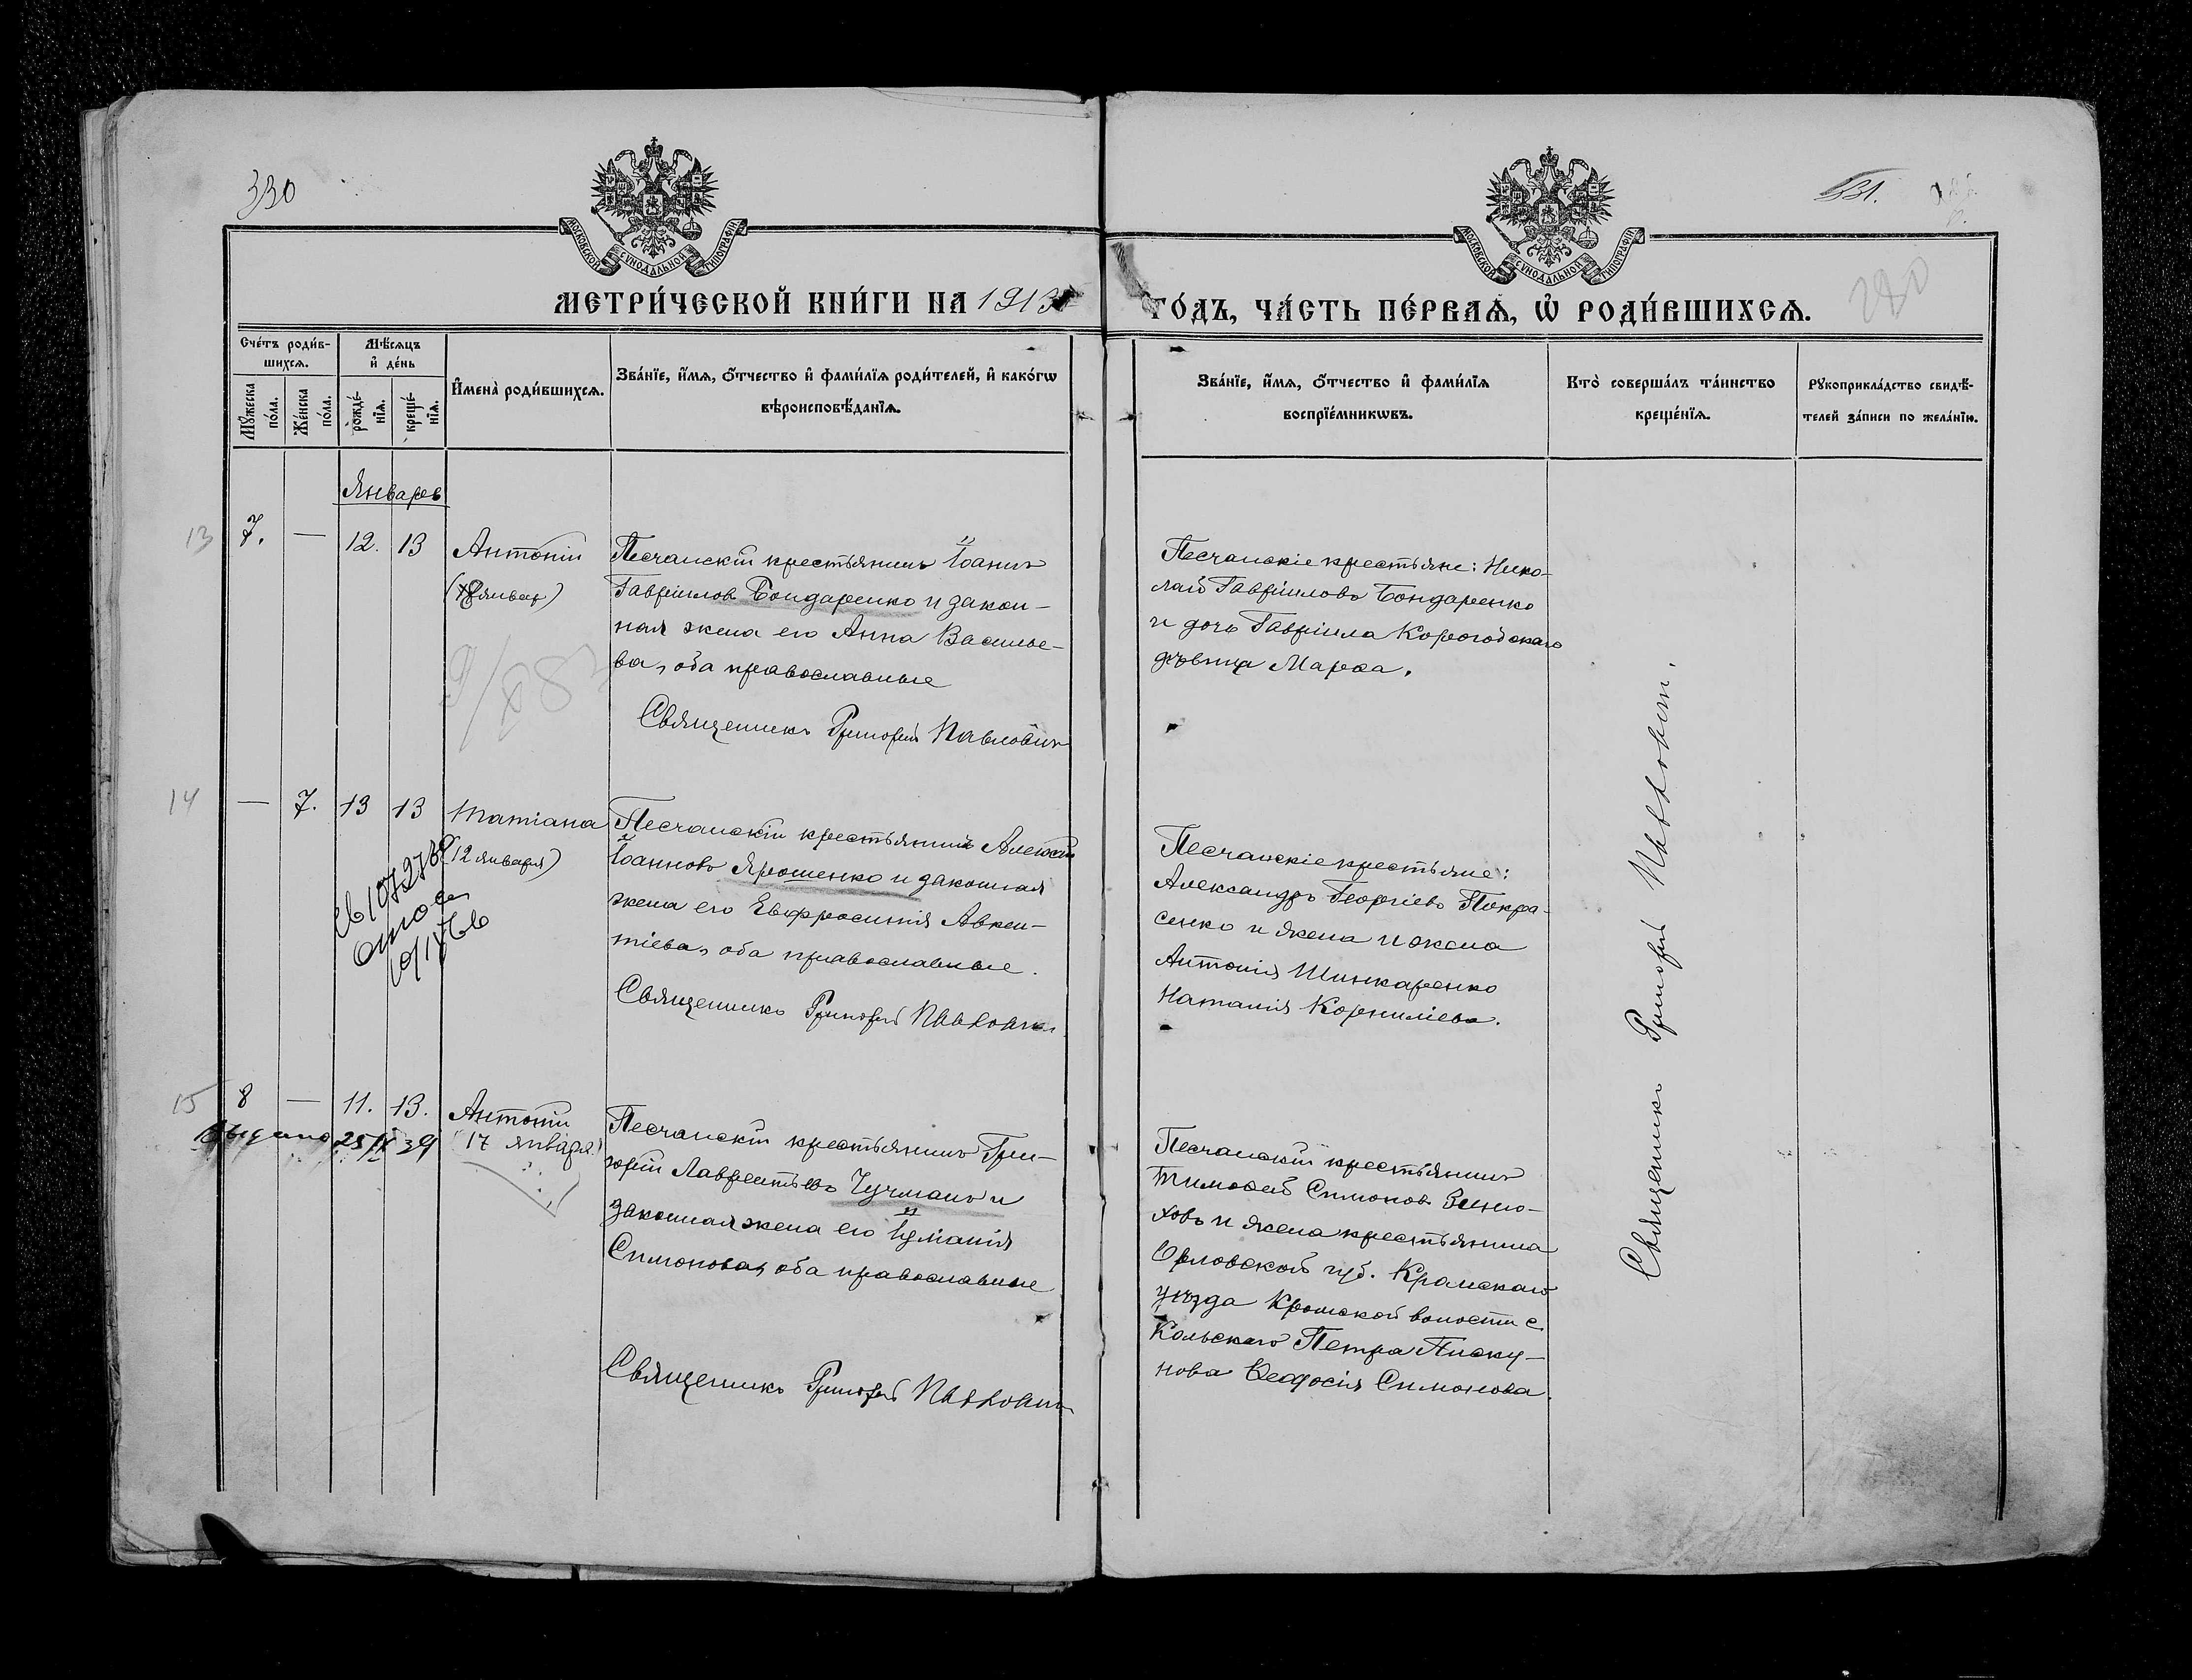 330
331.
280
МОСКОВСКОЙ СѴНОДАЛЬНОЙ ТИПОГРАФІИ
МОСКОВСКОЙ СѴНОДАЛЬНОЙ ТИПОГРАФІИ
МЕТРИ́ЧЕСКОЙ КНИ́ГИ НА 1913
ГО́ДЪ, ЧА́СТЬ ПЕ́РВАѦ, Ѡ҆ РОДИ́ВШИХСѦ.
Сче́тъ роди́в-
шихсѧ.
Мꙋ́жеска
по́ла.
Же́нска
по́ла.
Мѣ́сяцъ
и҆ де́нь
рожде́-
нїѧ.
креще́-
нїѧ.
И҆мена̀ роди́вшихсѧ.
Зва́нїе, и҆́мѧ, ѻ҆́тчество и҆ фами́лїѧ роди́телей, и҆ како́гѡ
вѣроисповѣ́данїѧ.
Зва́нїе, и҆́мѧ, ѻ҆́тчество и҆ фами́лїѧ
воспрїе́мникѡвъ.
Кто̀ соверша́лъ та́инство
креще́нїѧ.
Рꙋкоприкла́дство свидѣ́-
телей за́писи по жела́нїю.
Январь
13 7. — 12. 13 Антоній
Песчанскій крестьянинъ Іоаннъ
Гавріиловъ Бондаренко и закон-
ная жена его Анна Василье-
ва, оба православные
Священникъ Григорій Павловичъ
Песчанскіе крестьяне: Нико-
лай Гавріиловъ Бондаренко
и дочь Гавріила Корогодскаго
дѣвица Марѳа.
14 — 7. 13 13 Татіана
(12 января)
Песчанскій крестьянинъ Алексій
Іоанновъ Ярошенко и законная
жена его Евфросинія Авксен-
тіева, оба православные.
Священникъ Григорій Павловичъ
Песчанскіе крестьяне:
Александръ Георгіевъ Покра-
сенко и жена и жена
Антонія Шинкаренко
Наталія Корниліева.
15 8 — 11. 13. Антоній
(17 января)
Выдано 25/ІХ 39
Песчанскій крестьянинъ Гри-
горій Лаврентьевъ Чучманъ и
законная жена его Іуліанія
Симонова, оба православные
Священникъ Григорій Павловичъ
Песчанскій крестьянинъ
Тимоѳей Симоновъ
и жена крестьянина
Орловской губ. Кромскаго
уѣзда Кромской волости с.
Кольскаго Петра Писку-
нова Ѳеодосія Симонова.
Священникъ Григорій Павловичъ.